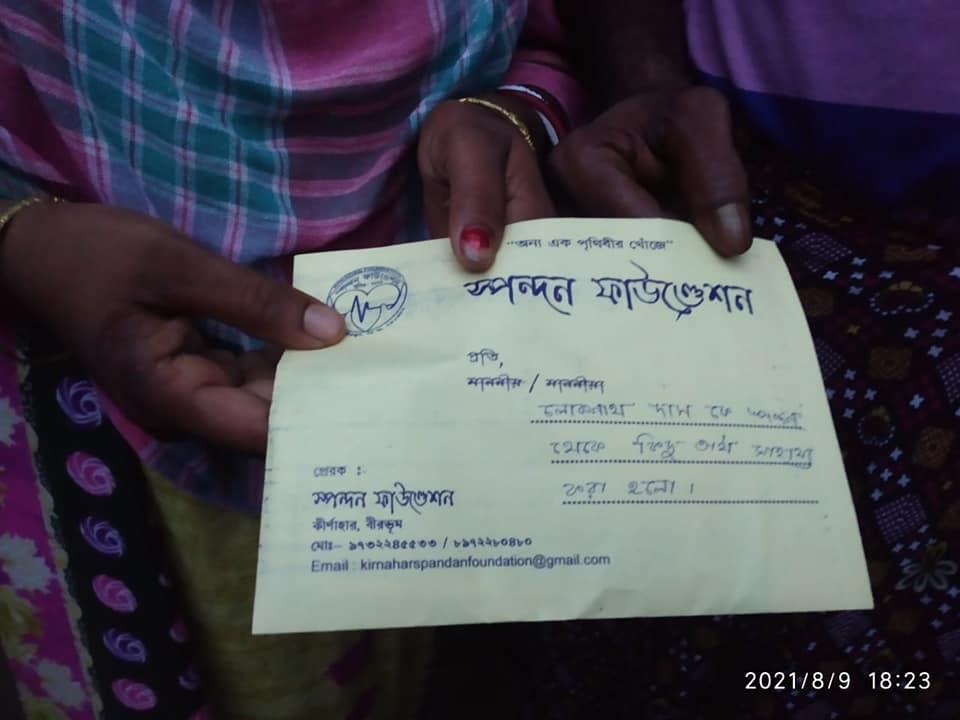 "অন্য এক পৃথিবীর খোঁজে"
স্পন্দন ফাউণ্ডেশন
প্রতি,
মাননীয় / মাননীয়া
লোকনাথ দাস কে "স্পন্দন"
থেকে কিছু অর্থ সাহায্য
করা হলো।
প্রেরক :
স্পন্দন ফাউণ্ডেশন
কীর্ণাহার, বীরভূম
মোঃ- ৯৭৩২২৪৫৫৩৩ / ৮৯৭২২৮০৪৮০
Email : kirnaharspandanfoundation@gmail.com
2021/8/9 18:23